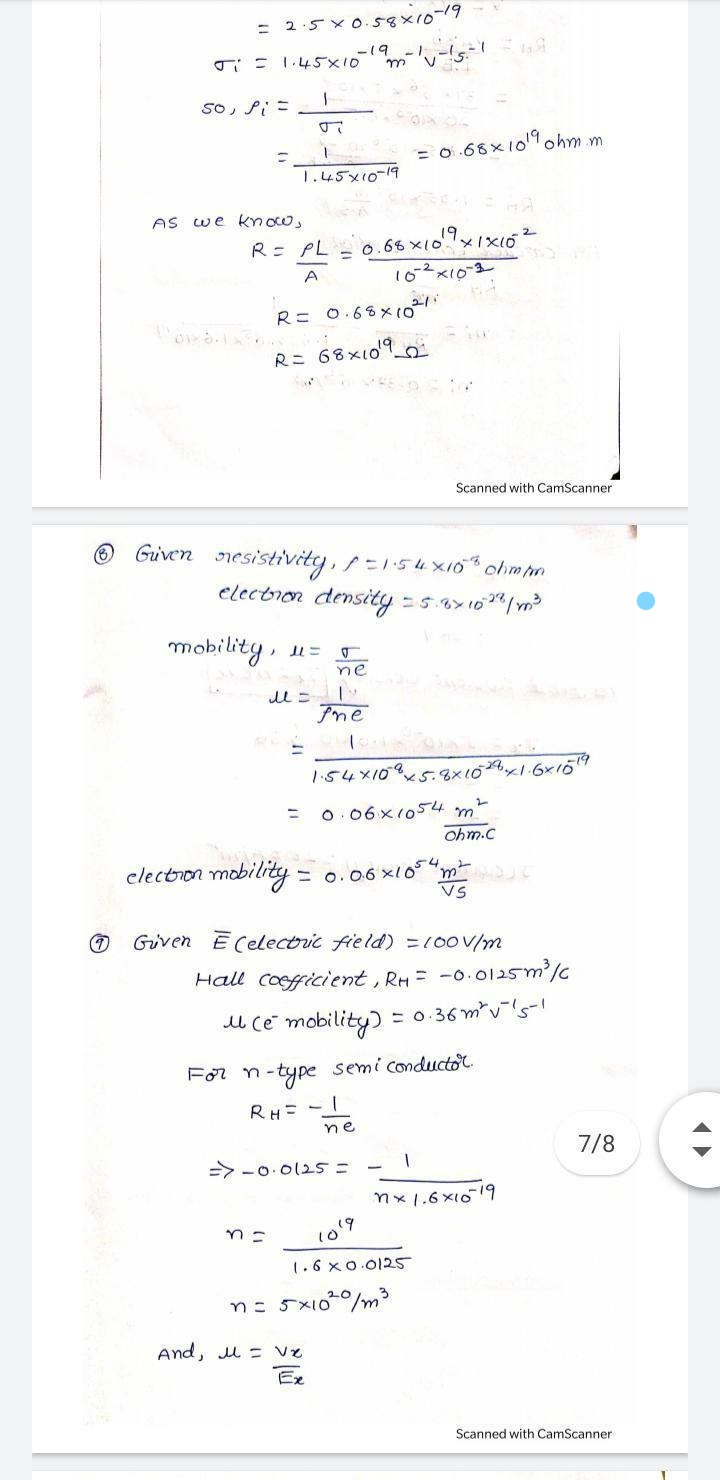 = 2.5 × 0.58×10⁻¹⁹
σi = 1.45×10⁻¹⁹ m⁻¹v⁻¹s⁻¹
so, ρi = 1/σi
= 1/1.45×10⁻¹⁹ = 0.68×10¹⁹ ohm.m
As we know,
R = ρL/A = 0.68×10¹⁹×1×10⁻²/10⁻²×10⁻²
R = 0.68×10²¹
R = 68×10¹⁹ Ω
Scanned with CamScanner
⑧ Given resistivity, ρ = 1.54×10⁻⁸ ohm/m
electron density = 5.8×10⁻²⁸/m³
mobility, μ = σ/ne
μ = 1/ρne
= 1/1.54×10⁻⁸×5.8×10⁻²⁸×1.6×10⁻¹⁹
= 0.06×10⁵⁴ m²/ohm.C
electron mobility = 0.06×10⁵⁴ m²/VS
⑨ Given E̅ (electric field) = 100V/m
Hall coefficient, RH = -0.0125m³/C
μ (e⁻ mobility) = 0.36m²v⁻¹s⁻¹
For n-type semiconductor.
RH = -1/ne
⇒ -0.0125 = - 1/n×1.6×10⁻¹⁹
n = 10¹⁹/1.6×0.0125
n = 5×10²⁰/m³
7/8
And, μ = Vx/Ex
Scanned with CamScanner